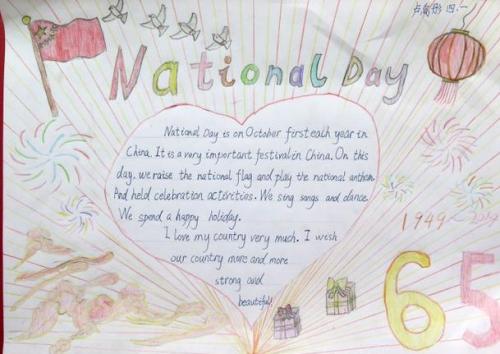 四·一
National Day
National Day is on October first each year in
China. It is a very important festival in China. On this
day, we raise the national flag and play the national anthem
And held celebration activities. We sing songs and dance.
We spend a happy holiday.
I love my country very much. I wish
our country more and more
strong and
beautiful!
1949~
65